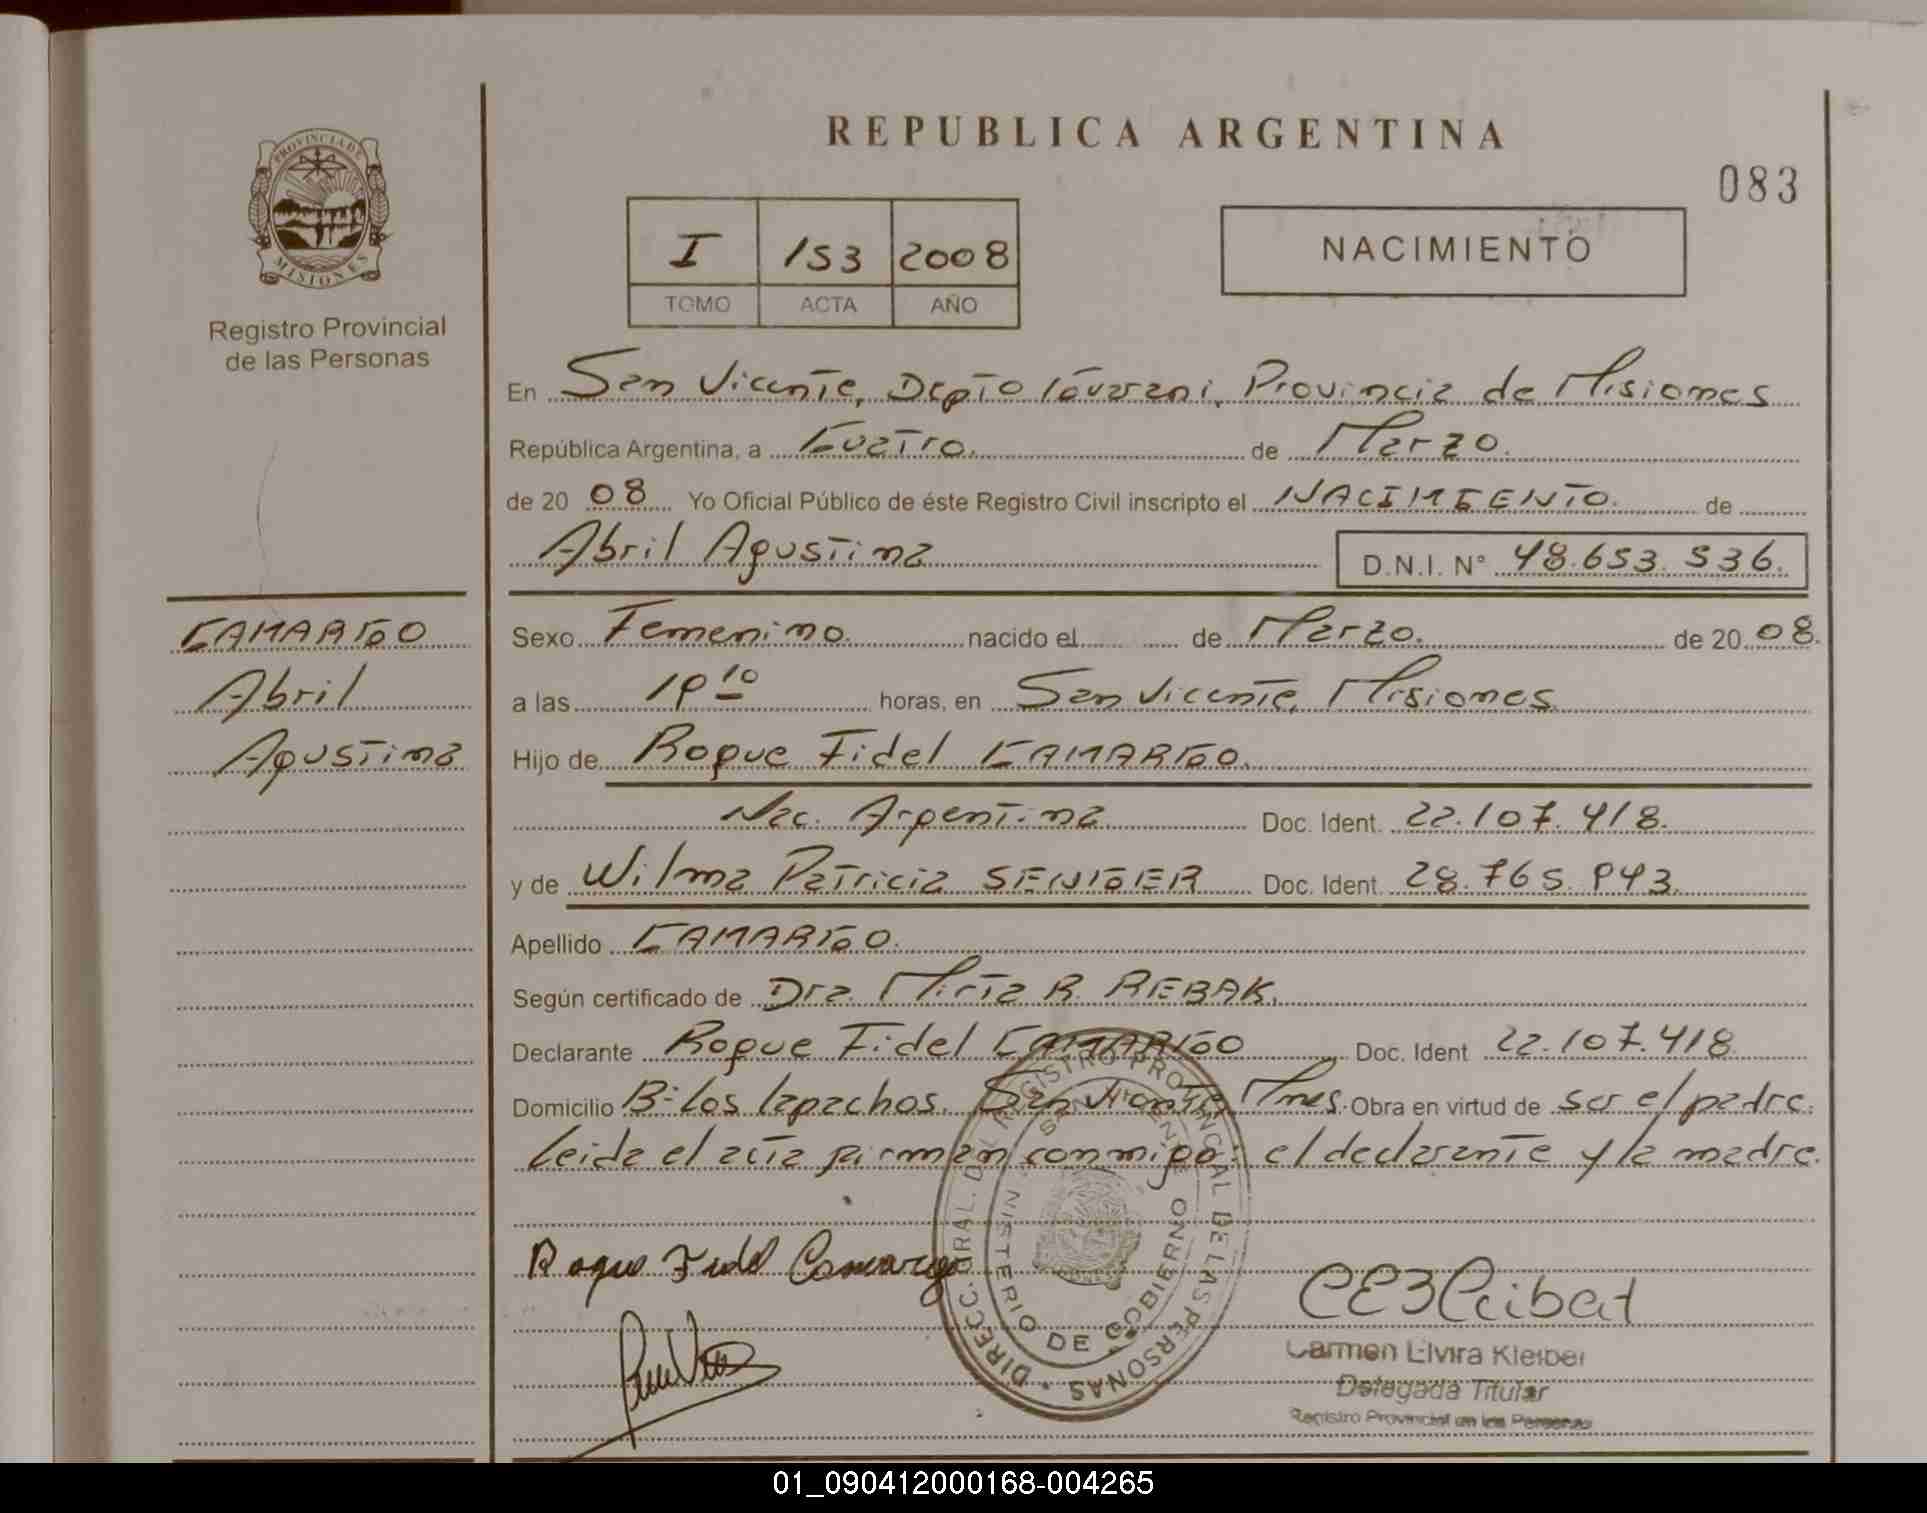 REPUBLICA ARGENTINA
083
PROVINCIA DE
MISIONES
Registro Provincial
de las Personas
I 153 2008
TOMO ACTA AÑO
NACIMIENTO
En San Vicente, Depto Guarani, Provincia de Misiones
República Argentina, a Cuatro. de Marzo.
de 20 08 Yo Oficial Público de éste Registro Civil inscripto el NACIMIENTO. de
Abril Agustina D.N.I. N° 48.653.536.
CAMARGO
Abril
Agustina
Sexo Femenino. nacido el de Marzo. de 20 08.
a las 19 10 horas, en San Vicente, Misiones
Hijo de Roque Fidel CAMARGO.
Nac. Argentina Doc. Ident. 22.107.418.
y de Wilma Patricia SENGER Doc. Ident. 28.765.943.
Apellido CAMARGO.
Según certificado de Dra. Mirta R. REBAK.
Declarante Roque Fidel CAMARGO Doc. Ident 22.107.418
Domicilio B- Los lapachos. San Vicente, Mnes. Obra en virtud de ser el padre.
Leida el acta firman conmigo: el declarante y la madre.
Roque Fidel Camargo
DIRECC. GRAL. DEL REGISTRO PROVINCIAL DE LAS PERSONAS
MINISTERIO DE GOBIERNO
SAN VICENTE
Carmen Elvira Kleiber
Delegada Titular
Registro Provincial de las Personas
01_090412000168-004265